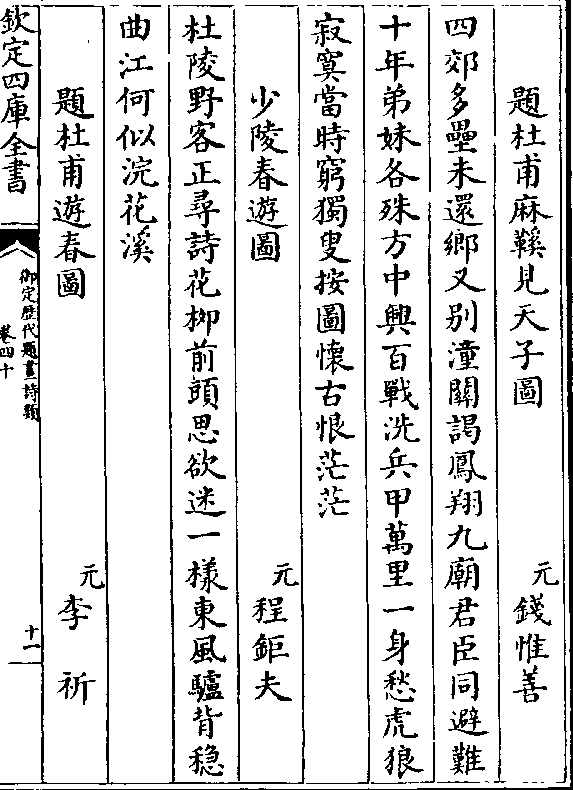 題杜甫麻鞵見天子圖　元　錢惟善
四郊多壘未還鄉又别潼關謁鳳翔九廟君臣同避難
十年弟妹各殊方中興百戰洗兵甲萬里一身愁虎狼
寂寞當時窮獨叟按圖懷古恨茫茫
少陵春遊圖　元　程鉅夫
杜陵野客正尋詩花栁前頭思欲迷一樣東風驢背穏
曲江何似浣花溪
題杜甫遊春圖　元　李祈
欽定四庫全書　御定歴代題畫詩類　卷四十　十一